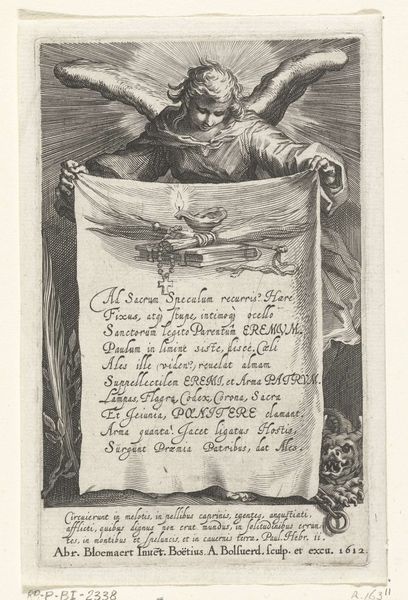 Ad Sacrum Speculum recurris? Hære
Fixus, atq́; stupe, intimoq́; ocello
Sanctorum legito Parentum EREMVM.
Paulum in limine siste, disce, Cœli
Ales ille, viden?, reuelat almam
Suppellectilem EREMI, et Arma PATRVM.
Lampas, Flagra, Codex, Corona, Sacra
Et Ieiunia, PŒNITERE clamant.
Arma quanta! Iacet ligatus Hostis,
Surgunt Præmia Patribus, dat Ales.
Circuierunt in melotis, in pellibus caprinis, egentes, angustiati,
afflicti, quibus dignus non erat mundus, in solitudinibus erran-
tes, in montibus et speluncis, et in cavernis terræ. Paul. Hebr. ii.
Abr. Bloemaert Inuēt. Boëtius. A. Bolsuerd. sculp. et excu. 1612.
RP-P-BI-2338
R. 163 II